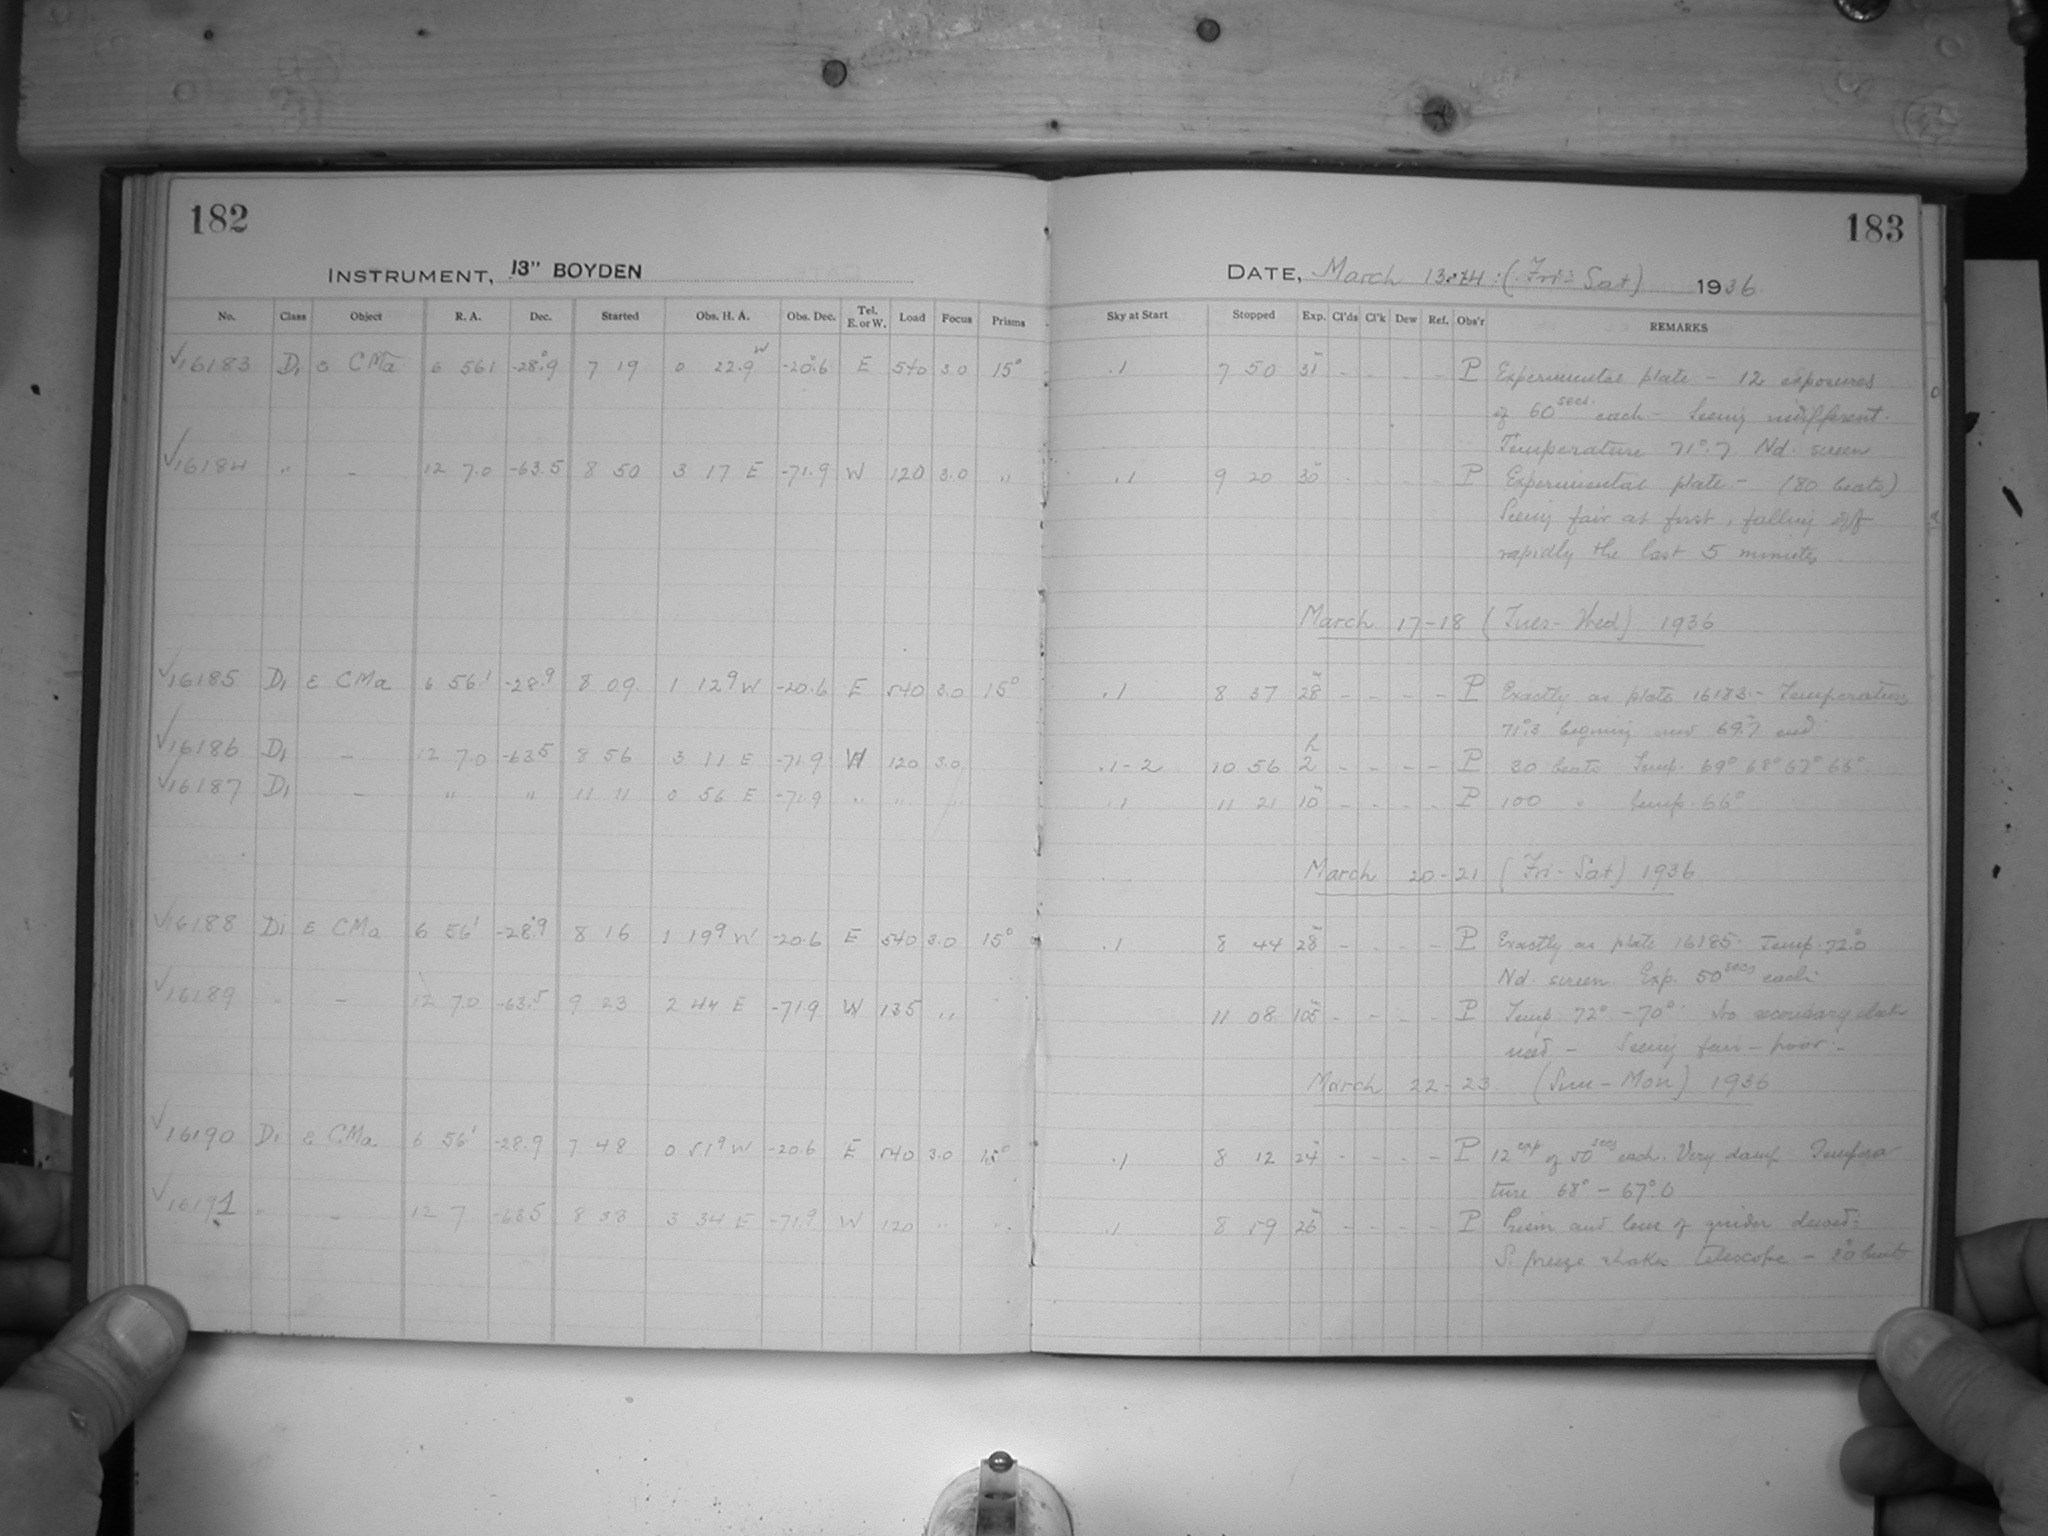 182
INSTRUMENT, 13" BOYDEN
No. Class Object R. A. Dec. Started Obs. H. A. Obs. Dec. Tel. E. or W. Load Focus Prisms
√16183 D, CMa 6 561 -28.9 7 19 0 22.9 W -20.6 E 540 3.0 15°
√16184 " - 12 7.0 -63.5 8 50 3 17 E -71.9 W 120 3.0 "
√16185 D, ε CMa 6 56.1 -28.9 8 09 1 12.9 W -20.6 E 540 3.0 15°
√16186 D, - 12 7.0 -63.5 8 56 3 11 E -71.9 W 120 3.0
√16187 D, - " " 11 11 0 56 E -71.9 " " "
√16188 Di ε CMa 6 56.1 -28.9 8 16 1 19.9 W -20.6 E 540 3.0 15°
√16189 - - 12 7.0 -63.5 9 23 2 44 E -71.9 W 135 "
√16190 Di ε CMa 6 56.1 -28.9 7 48 0 51.9 W -20.6 E 540 3.0 15°
√16191 " - 12 7 -63.5 8 33 3 34 E -71.9 W 120 " "
183
DATE, March (Fri-Sat) 1936
Sky at Start Stopped Exp. Cl'ds Cl'k Dew Ref. Obs'r REMARKS
.1 7 50 31 - - - - P Experimental plate - 12 exposures
of 60 secs. each - Seeing indifferent.
Temperature 71°.7 Nd. screen
.1 9 20 30 - - - - P Experimental plate - (80 beats)
Seeing fair at first, falling off
rapidly the last 5 minutes
March 17-18 (Tues-Wed) 1936
.1 8 37 28 - - - - P Exactly as plate 16183 - Temperature
71°.3 69.7 end
.1-2 10 56 2h - - - - P 30 beats Temp. 69° 68° 67° 66°
.1 11 21 10 - - - - P 100 " temp. 66°
March 20-21 (Fri-Sat) 1936
.1 8 44 28 - - - - P Exactly as plate 16185. Temp. 72.0
Nd. screen Exp. 50 secs each
11 08 105 - - - - P Temp 72° - 70° No secondary
- Seeing fair - poor -
March 22-23 (Sun-Mon) 1936
.1 8 12 24 - - - - P 12 exp of 50 secs each. Very damp Tempera
ture 68° - 67°.0
.1 8 59 26 - - - - P Prism and lens of guider dewed -
S. breeze shakes telescope - 30 beats